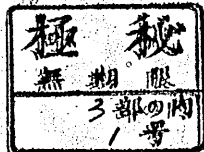 極秘
無期限
3部の内
1号